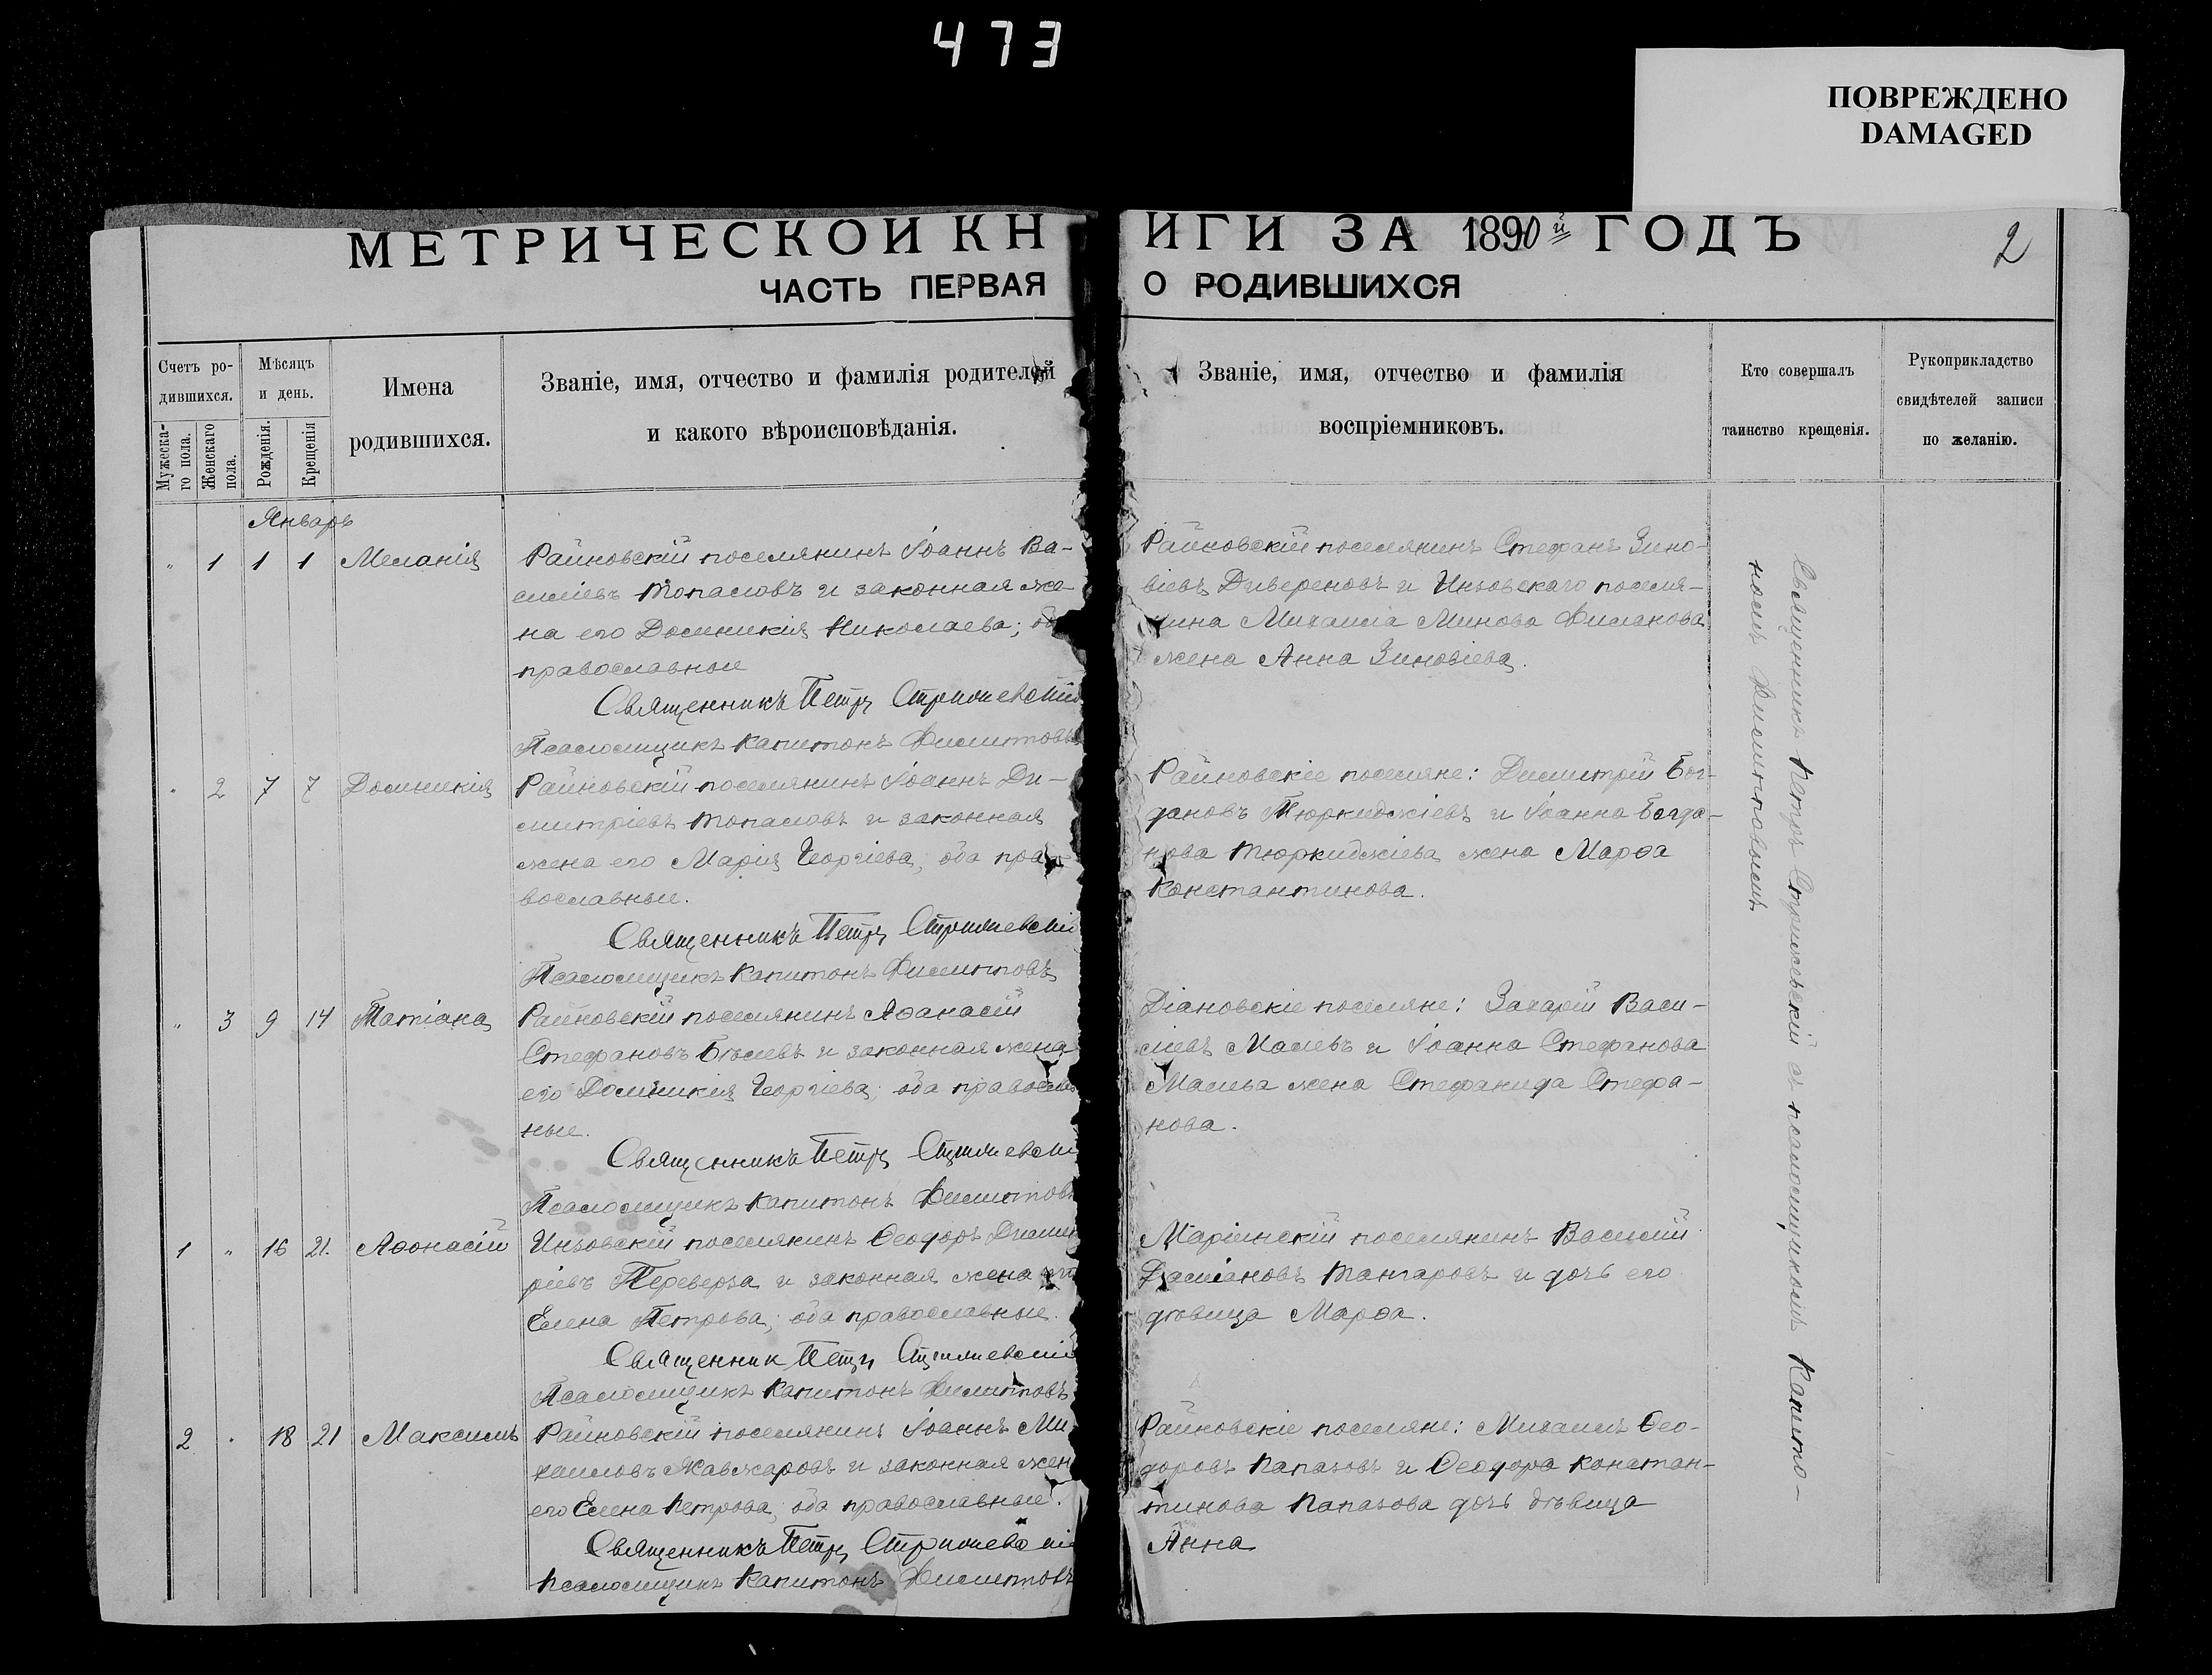 473
ПОВРЕЖДЕНО
DAMAGED
МЕТРИЧЕСКОЙ КН
ИГИ ЗА 1890й ГОДЪ
2
ЧАСТЬ ПЕРВАЯ
О РОДИВШИХСЯ
Счетъ ро-
дившихся.
Мужеска-
го пола.
Женскаго
пола.
Мѣсяцъ
и день.
Рожденія.
Крещенія
Имена
родившихся.
Званіе, имя, отчество и фамилія родителей
и какого вѣроисповѣданія.
Званіе, имя, отчество и фамилія
воспріемниковъ.
Кто совершалъ
таинство крещенія.
Рукоприкладство
свидѣтелей записи
по желанію.
Январь
" 1 1 1 Меланія
Райновскій поселянинъ Іоаннъ Ва-
силіевъ Топаловъ и законная же-
на его Доминикія Николаева; об
православные
Священникъ Петръ
Псаломщикъ Капитонъ Филиповъ
Райновскій поселянинъ Стефанъ Зино-
віевъ и Инзовскаго поселя-
нина Михаила Минова
жена Анна Зиновіева.
" 2 7 7 Доминикія
Райновскій поселянинъ Іоаннъ Ди-
митріевъ Топаловъ и законная
жена его Марія Георгіева; оба пра-
вославные.
Священникъ Петръ
Псаломщикъ Капитонъ Филиповъ
Райновскіе поселяне: Димитрій Бог-
дановъ Тюркиджіевъ и Іоанна Богда-
нова Тюркиджіева жена Марѳа
Константинова.
" 3 9 14 Татіана
Райновскій поселянинъ Аѳанасій
Стефановъ и законная жена
его Доминикія Георгіева; оба правосла
ные.
Священникъ Петръ
Псаломщикъ Капитонъ Филиповъ
Діановскіе поселяне: Захарій Васи-
ліевъ Малевъ и Іоанна Стефанова
Малева жена Стефанида Стефа-
нова.
1 " 16 21. Аѳонасій
Инзовскій поселянинъ Ѳеодоръ Димит
ріевъ Переверза и законная жена его
Елена Петрова; оба православные.
Священник Петръ
Псаломщикъ Капитонъ Филиповъ
Маріинскій поселянинъ Василій
Даміановъ Тангаровъ и дочь его
дѣвица Марѳа.
2 " 18 21 Максимъ
Райновскій поселянинъ Іоаннъ Ми-
хаиловъ Жавжаровъ и законная жен
его Елена Петрова; оба православные.
Священникъ Петръ
Псаломщикъ Капитонъ Филиповъ
Райновскіе поселяне: Михаилъ Ѳео-
доровъ Папазовъ и Ѳеодора Констан-
тинова Папазова дочь дѣвица
Анна
Священникъ Петръ съ псаломщикомъ Капито-
номъ